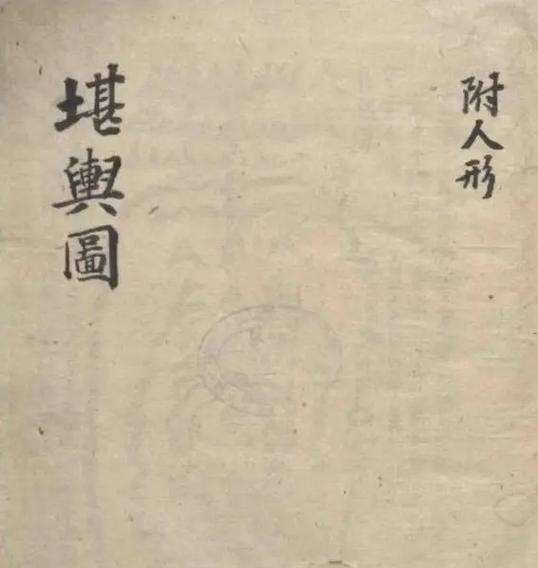 附人形
堪輿圖